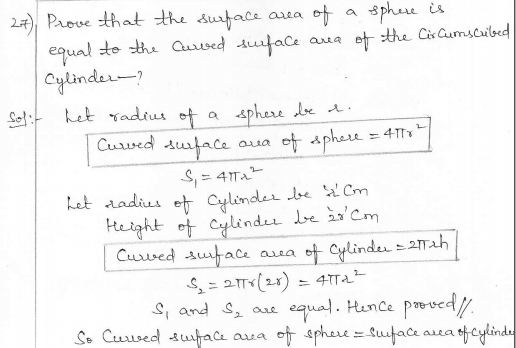 27) Prove that the surface area of a sphere is
equal to the curved surface area of the circumscribed
Cylinder —?
Sol:- Let radius of a sphere be r.
Curved surface area of sphere = 4πr²
S₁ = 4πr²
Let radius of Cylinder be 'r' Cm
Height of Cylinder be '2r' Cm
Curved surface area of Cylinder = 2πrh
S₂ = 2πr(2r) = 4πr²
S₁ and S₂ are equal. Hence proved//.
So Curved surface area of sphere = Surface area of Cylinde